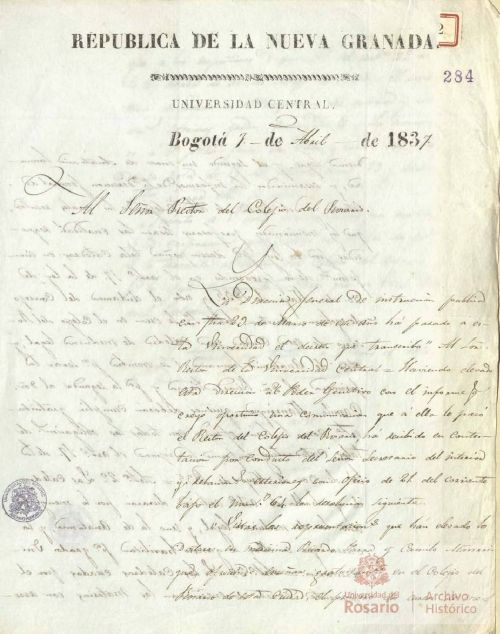 2
REPUBLICA DE LA NUEVA GRANADA.
284
UNIVERSIDAD CENTRAL.
Bogotá 7 de Abril de 1837
Al Señor Rector del Colegio del Rosario.
La Direccion general de instruccion publica
con fha 23 de Marzo de este año ha pasado a es
ta Universidad el decreto que transcribo " Al Sor
Rector de la Universidad Central = Haviendo elevado
esta Direccion al Poder Ejecutivo con el informe q
creyó oportuno una comunicacion que á ella le pasó
el Rector del Colegio del Rosario, ha recibido en contes
tacion por conducto del Señor Secretario del interior
y relaciones exteriores en oficio de 21 del corriente
bajo el num 64 la resolucion siguiente.
Vistas las representacion que han elevado los
Ricardo y Camilo
que en el Colegio del
Rosario de esta Ciudad, el
Universidad del
Rosario
Archivo
Histórico